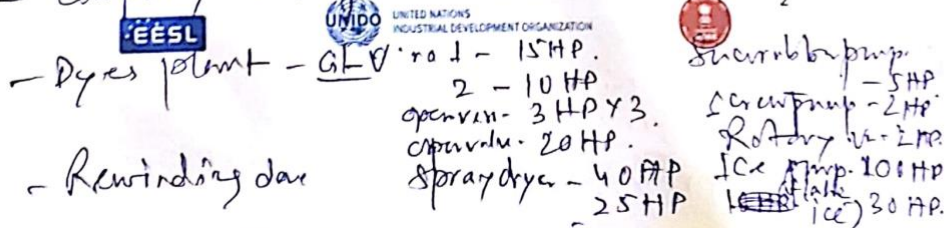 EESL
UNIDO UNITED NATIONS
INDUSTRIAL DEVELOPMENT ORGANIZATION
- Dyes plant - GLV no 1 - 15HP.
2 - 10 HP
3 HP x 3.
20 HP.
- Rewinding done
Spray dryer - 40 HP
25 HP
- 5HP
Screw pump - 2HP
Rotary - 2HP.
ICe 100 HP
ice) 30 HP.